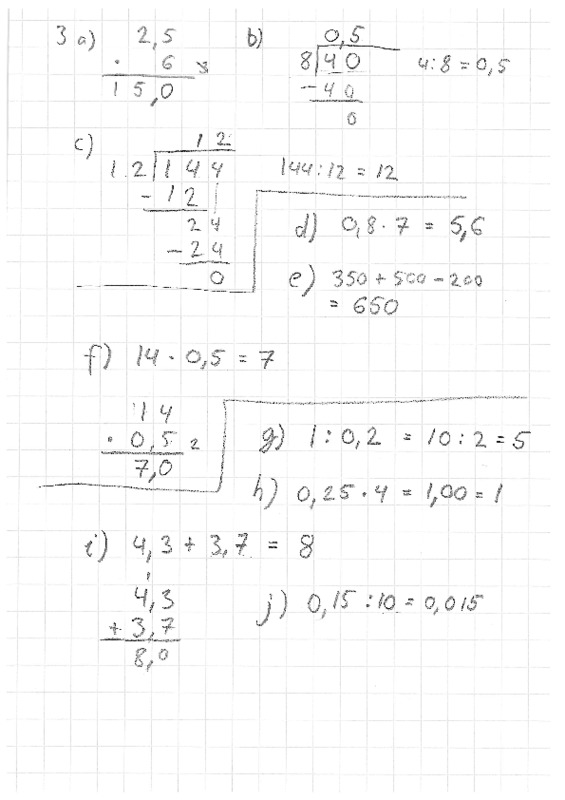 3 a) 2,5
· 6 3
15,0
b) 0,5
8|40 4:8=0,5
-40
0
c) 12
12|144 144:12 = 12
-12
24
-24
0
d) 0,8·7 = 5,6
e) 350+500-200
= 650
f) 14·0,5 = 7
14
· 0,5 2
7,0
g) 1:0,2 = 10:2=5
h) 0,25·4 = 1,00=1
i) 4,3+3,7 = 8
1
4,3
+3,7
8,0
j) 0,15:10=0,015